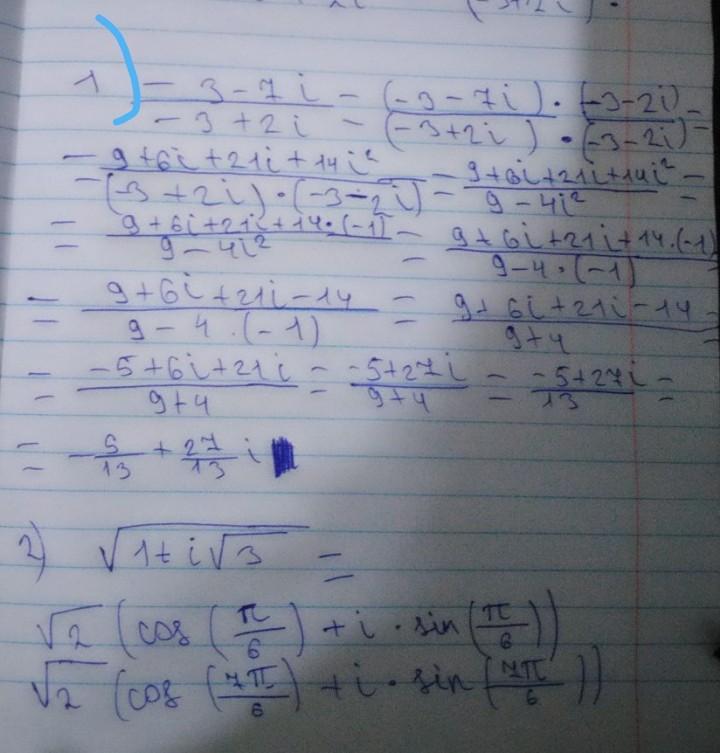 (-3+2i)
1) \frac{-3-7i}{-3+2i} = \frac{(-3-7i)·(-3-2i)}{(-3+2i)·(-3-2i)} =
= \frac{9+6i+21i+14i²}{(-3+2i)·(-3-2i)} = \frac{9+6i+21i+14i²}{9-4i²} =
= \frac{9+6i+21i+14·(-1)}{9-4i²} = \frac{9+6i+21i+14·(-1)}{9-4·(-1)}
= \frac{9+6i+21i-14}{9-4·(-1)} = \frac{9+6i+21i-14}{9+4} =
= \frac{-5+6i+21i}{9+4} = \frac{-5+27i}{9+4} = \frac{-5+27i}{13} =
= -\frac{5}{13} + \frac{27}{13}i
2) \sqrt{1+i\sqrt{3}} =
\sqrt{2}(cos(\frac{π}{6})+i·sin(\frac{π}{6}))
\sqrt{2}(cos(\frac{7π}{6})+i·sin(\frac{7π}{6}))